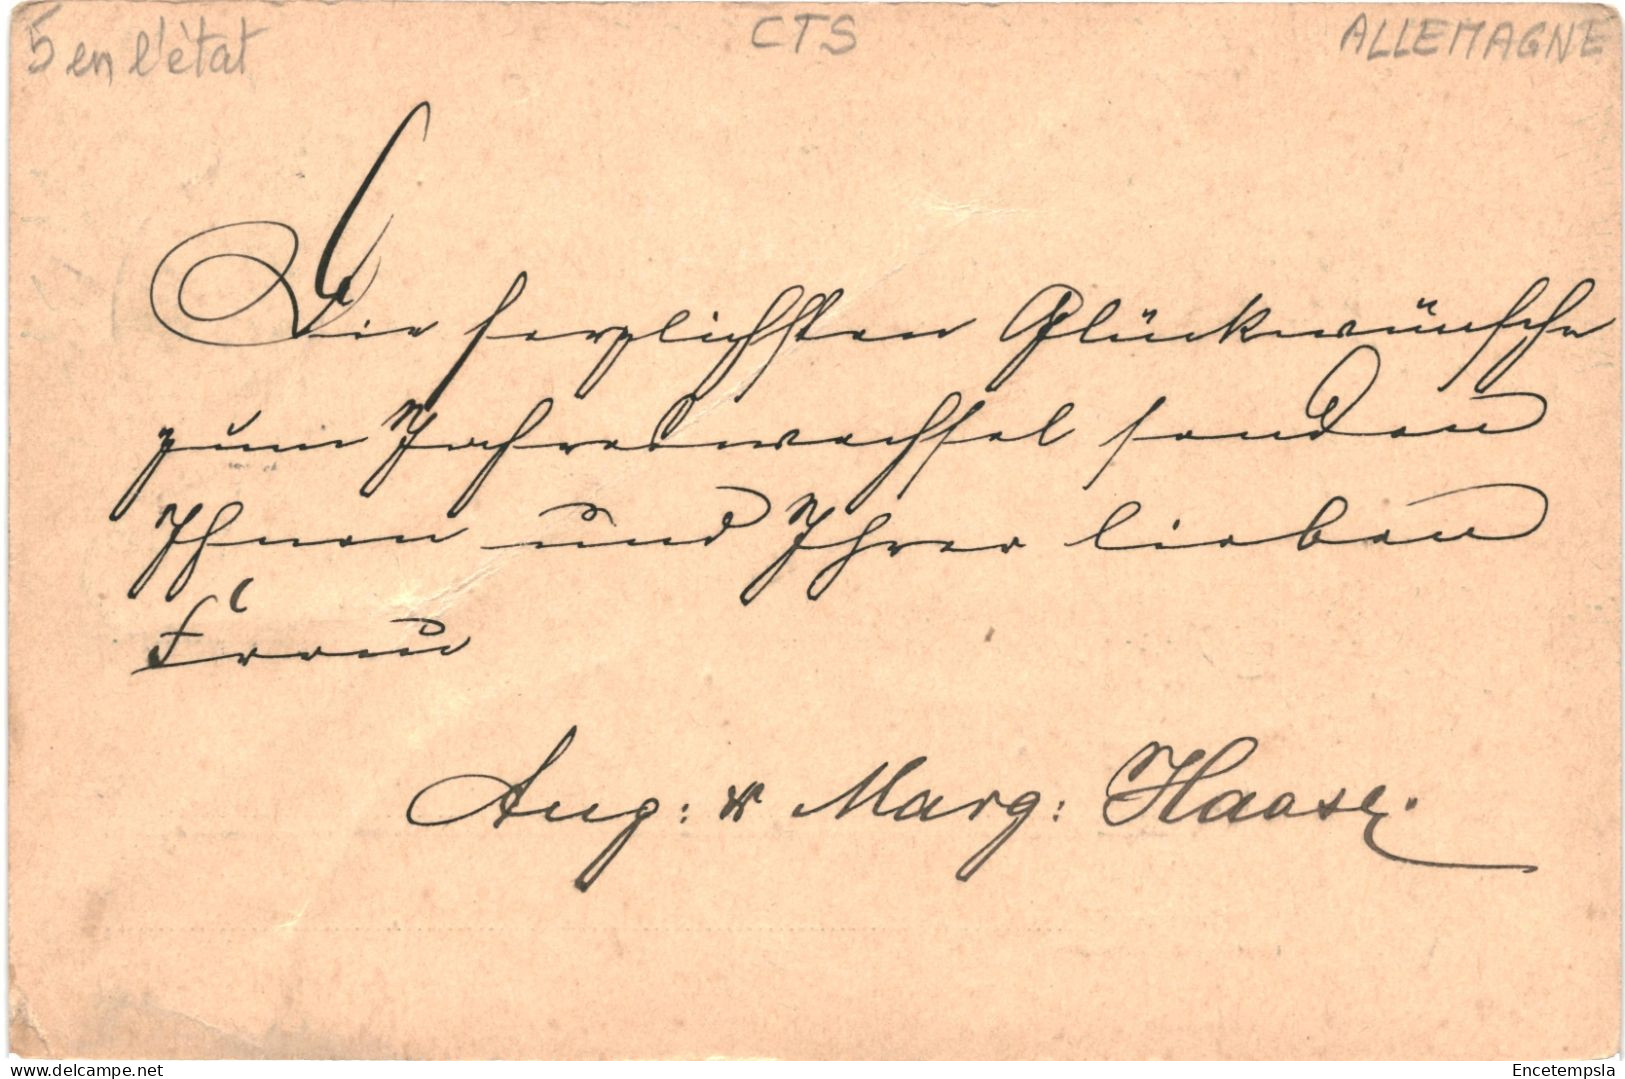 5 en l'état
CTS
ALLEMAGNE
Die herzlichsten Glückwünsche
zum Jahreswechsel senden
Ihnen und Ihrer lieben
Frau
Aug: & Marg: Haase.
delcampe.net
Encetempsla